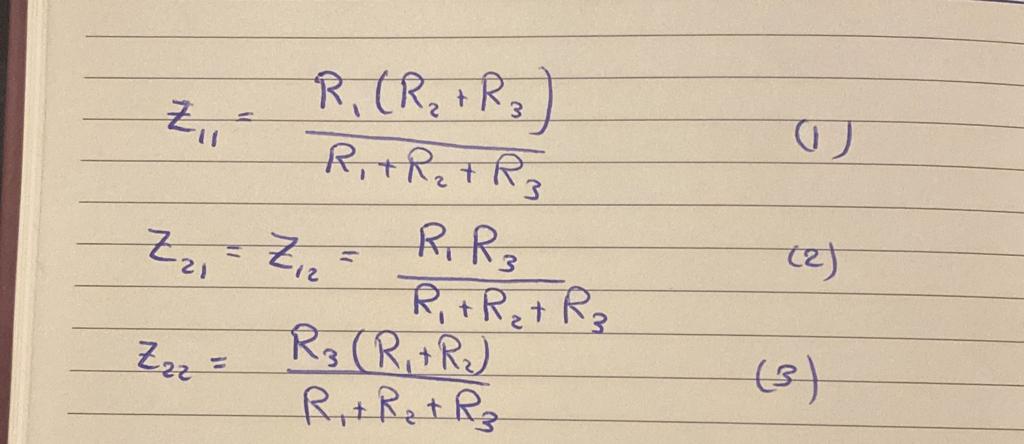 Z₁₁ = R₁(R₂ + R₃) / R₁ + R₂ + R₃ (1)
Z₂₁ = Z₁₂ = R₁R₃ / R₁ + R₂ + R₃ (2)
Z₂₂ = R₃(R₁ + R₂) / R₁ + R₂ + R₃ (3)